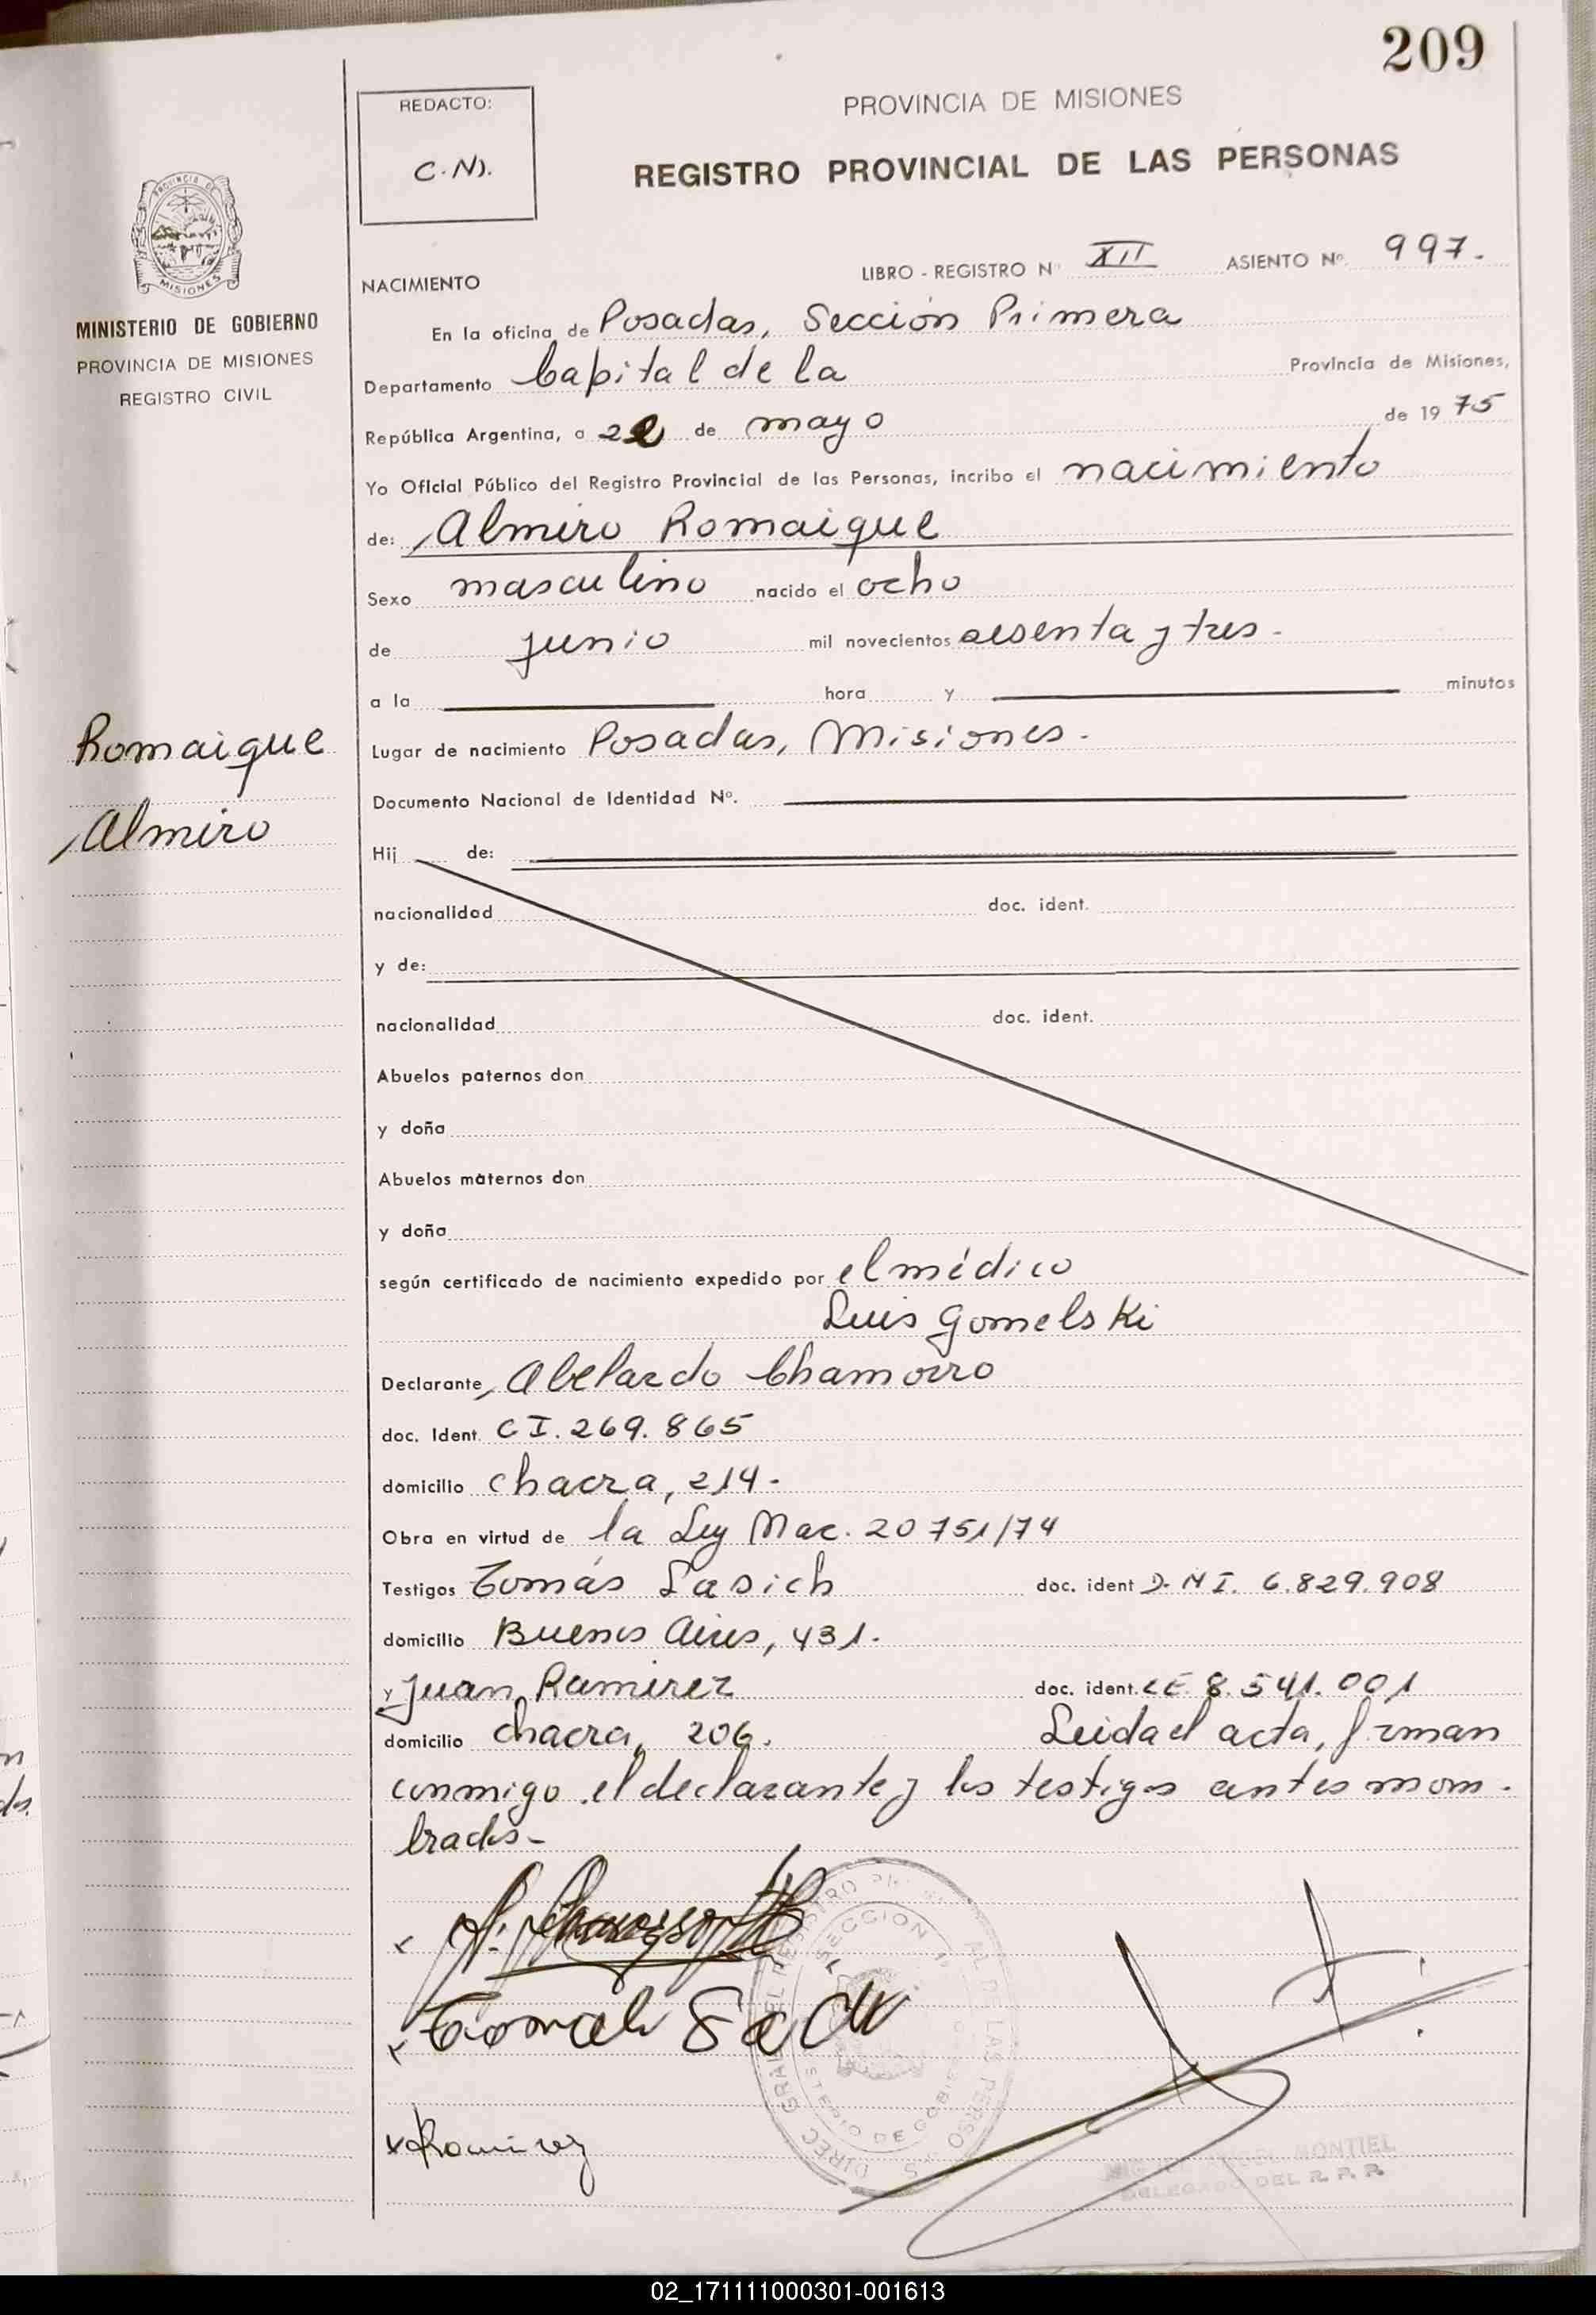 209
REDACTO:
C.N.
PROVINCIA DE MISIONES
REGISTRO PROVINCIAL DE LAS PERSONAS
MISIONES
MINISTERIO DE GOBIERNO
PROVINCIA DE MISIONES
REGISTRO CIVIL
LIBRO - REGISTRO Nº XII ASIENTO Nº 997.
NACIMIENTO
En la oficina de Posadas, Sección Primera
Departamento Capital de la Provincia de Misiones,
República Argentina, a 22 de mayo de 1975
Yo Oficial Público del Registro Provincial de las Personas, incribo el nacimiento
de: Almiro Romaique
Sexo masculino nacido el ocho
de junio mil novecientos sesenta y tres.
a la hora y minutos
Romaique
Almiro
Lugar de nacimiento Posadas, Misiones.
Documento Nacional de Identidad Nº.
Hij de:
nacionalidad doc. ident.
y de:
nacionalidad doc. ident.
Abuelos paternos don
y doña
Abuelos maternos don
y doña
según certificado de nacimiento expedido por el médico
Luis Gomelski
Declarante Abelardo Chamorro
doc. Ident. CI. 269.865
domicilio chacra, 214.
Obra en virtud de la Ley Nac. 20751/74
Testigos Tomás Sasich doc. ident D.N I. 6.829.908
domicilio Buenos Aires, 431.
y Juan Ramirez doc. ident. LE 8.541.001
domicilio chacra, 206. Leida el acta, firman
conmigo el declarante y los testigos antes nom-
brados-
Ramirez
MIGUEL ANGEL MONTIEL
DELEGADO DEL R. P. P.
02_171111000301-001613